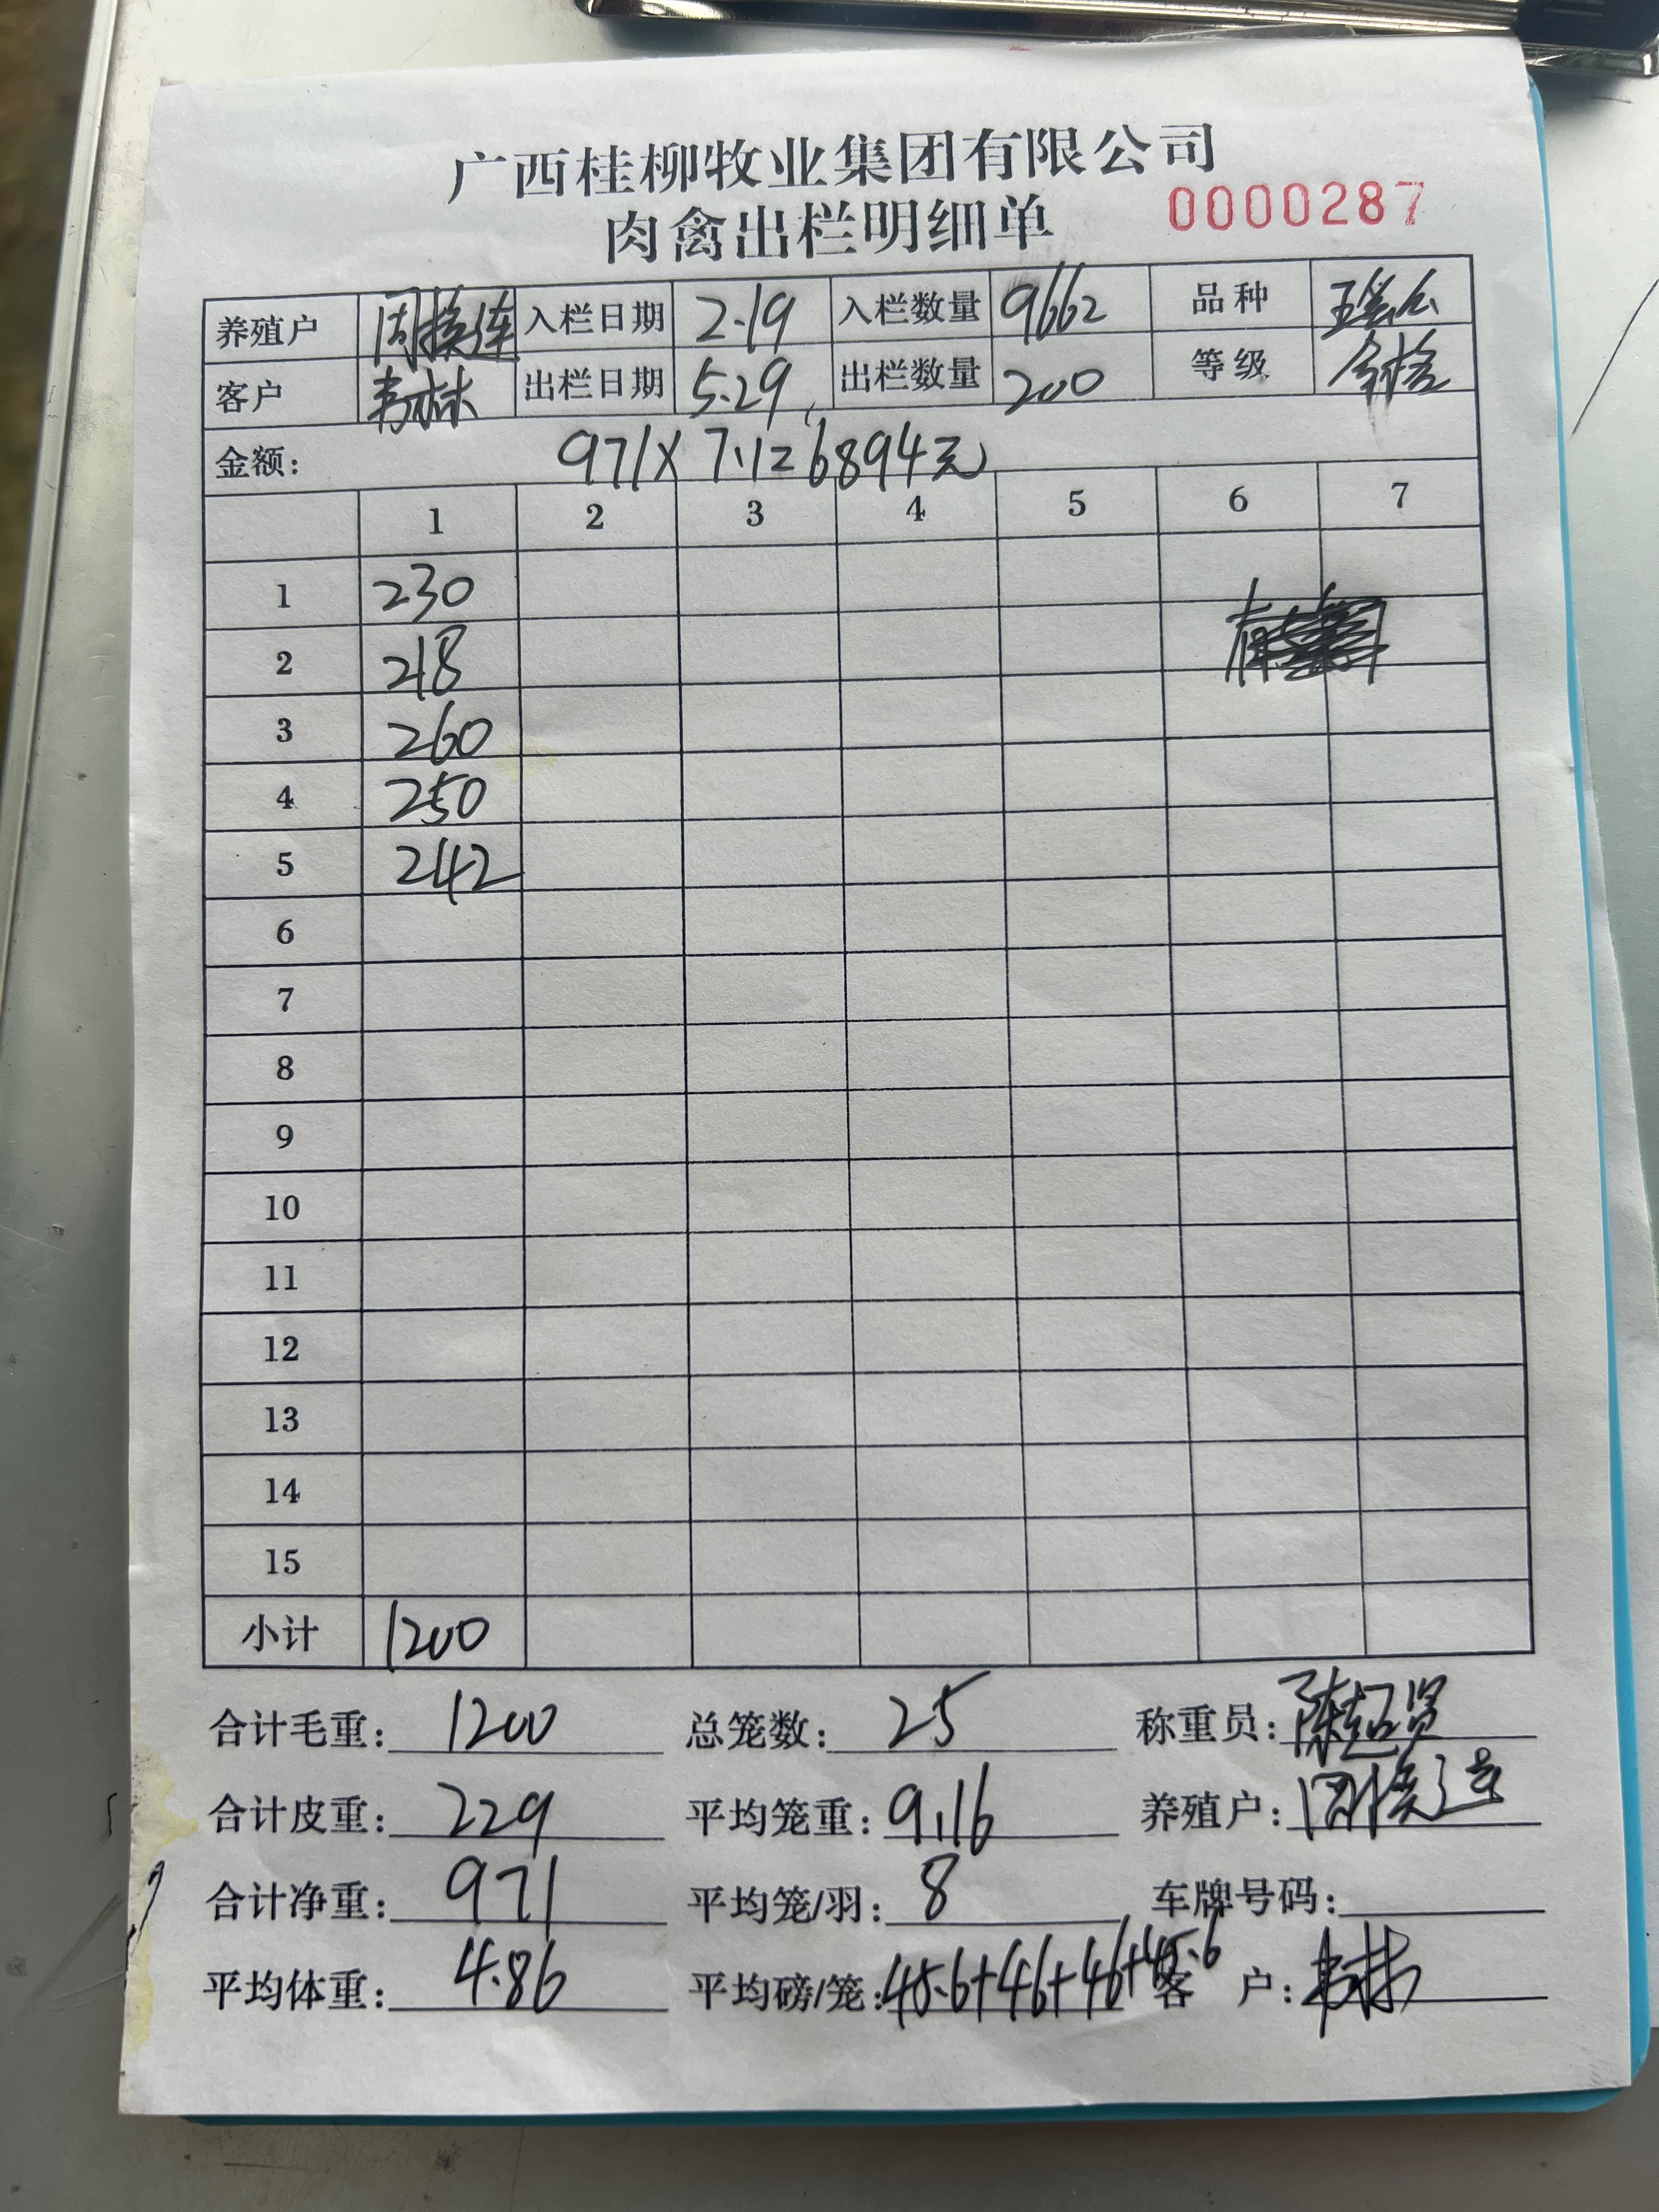 广西桂柳牧业集团有限公司
肉禽出栏明细单 0000287
养殖户 周 连 入栏日期 2.19 入栏数量 9662 品种
客户 韦林 出栏日期 5.29 出栏数量 200 等级 合格
金额: 971×7.1=6894元
1 2 3 4 5 6 7
1 230
2 218
3 260
4 250
5 242
6
7
8
9
10
11
12
13
14
15
小计 1200
合计毛重: 1200 总笼数: 25 称重员: 陈超贤
合计皮重: 229 平均笼重: 9.16 养殖户: 周 连
合计净重: 971 平均笼/羽: 8 车牌号码:
平均体重: 4.86 平均磅/笼: 45.6+46+46+45.6 客户: 韦林